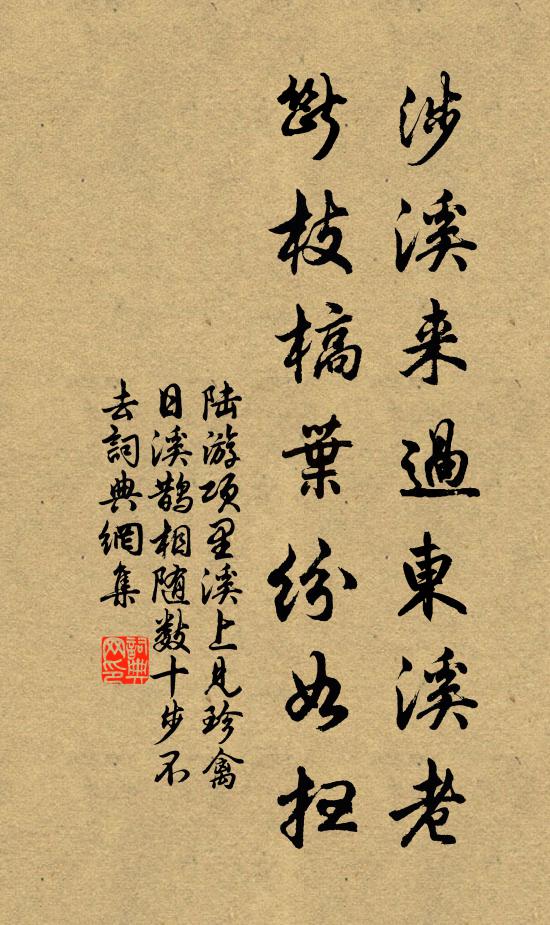 涉溪来過東溪老
斷枝槁葉紛如扫
陆游项里溪上見珍禽
日溪鹊相随数十步不
去詞典網集
詞典
网印